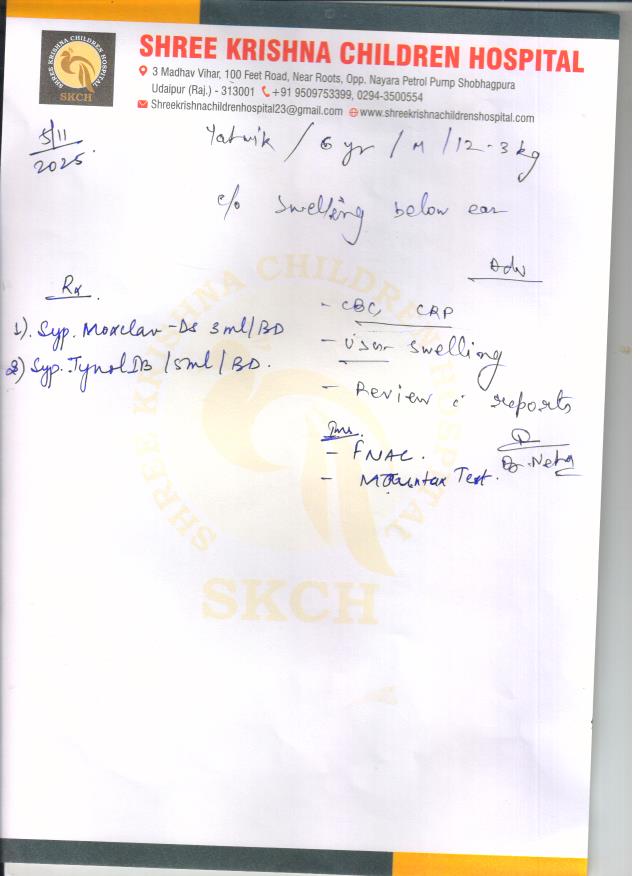 SHREE KRISHNA CHILDREN HOSPITAL
3 Madhav Vihar, 100 Feet Road, Near Roots, Opp. Nayara Petrol Pump Shobhagpura
Udaipur (Raj.) - 313001 +91 9509753399, 0294-3500554
Shreekrishnachildrenhospital23@gmail.com www.shreekrishnachildrenshospital.com
SHREE KRISHNA CHILDREN HOSPITAL
SKCH
5/11
2025.
Yatwik / 6 yr / M / 12.3 kg
c/o swelling below ear
Adv
Rx.
- CBC, CRP
1). Syp. Moxclav-Ds 3ml/BD
- USG swelling
2) Syp. Tynol IB / 5ml / BD.
- Review c reports
- FNAC.
Dr. Neha
- Mountax Test.
SHREE KRISHNA CHILDREN HOSPITAL
SKCH